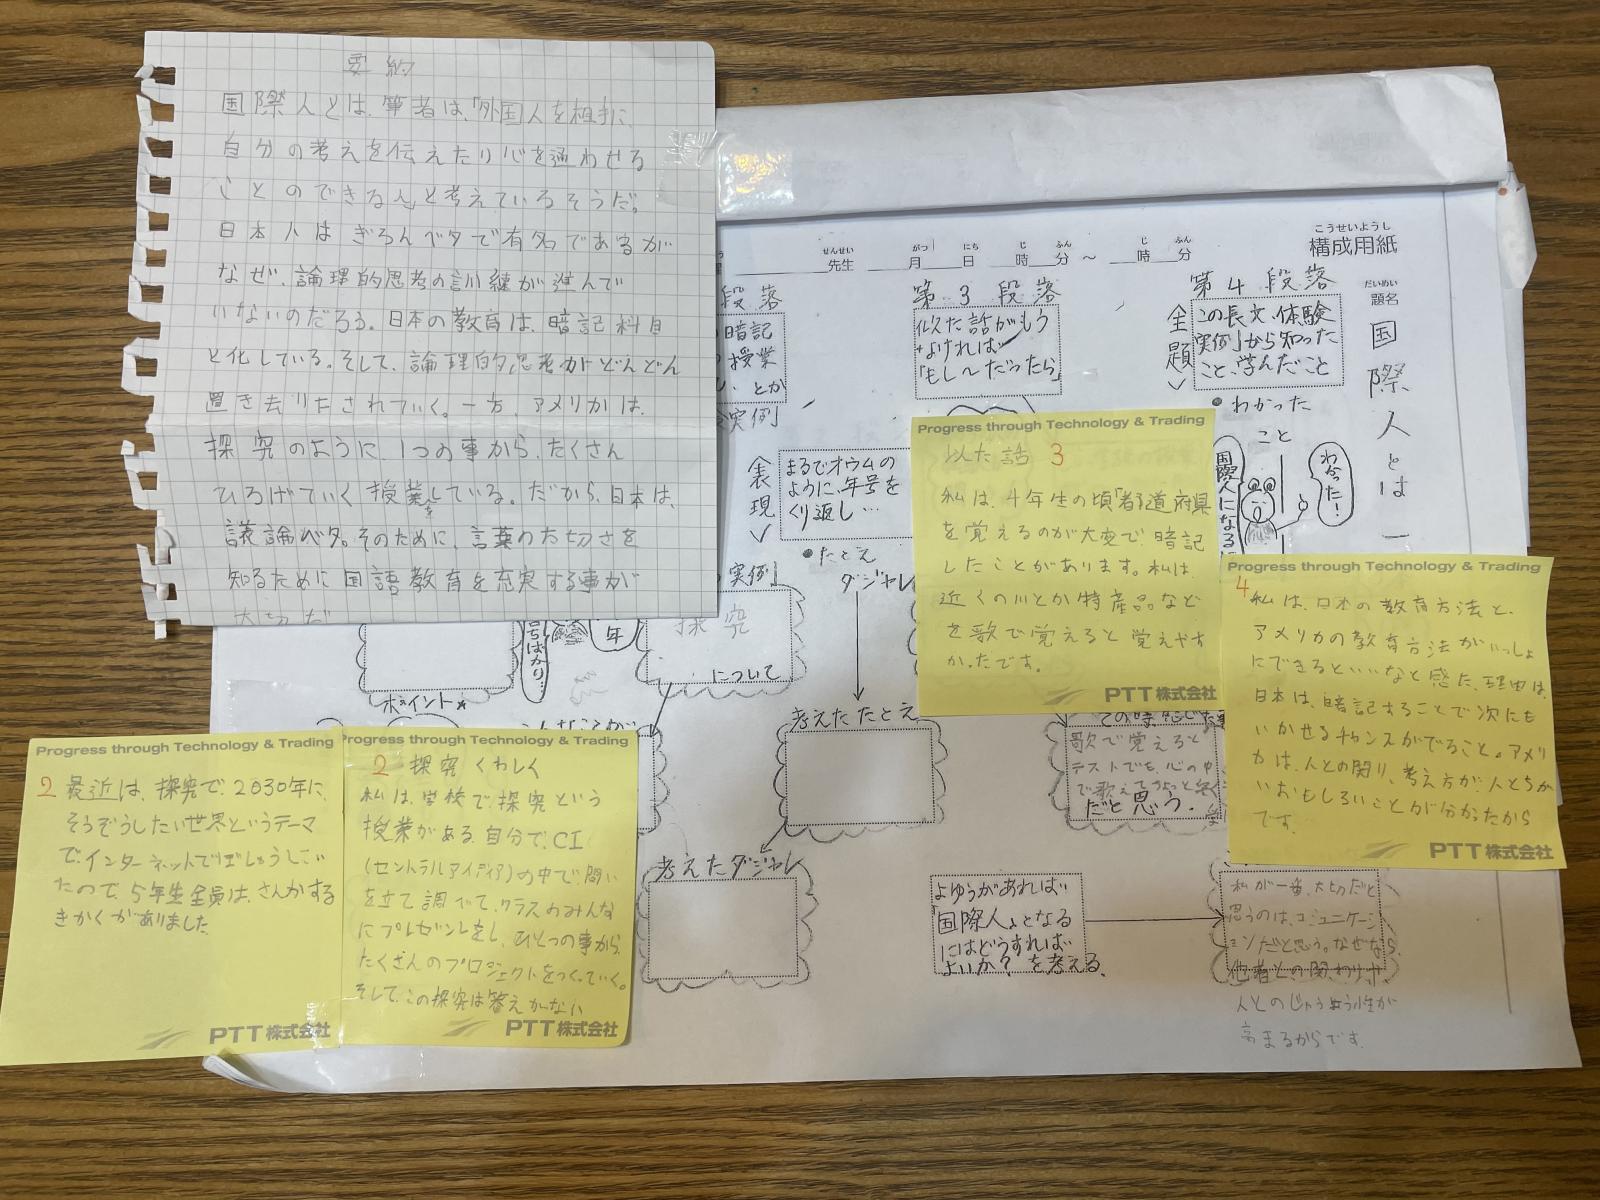 要約
国際人とは、筆者は、「外国人を相手に、
自分の考えを伝えたり心を通わせる
ことのできる人と考えているそうだ。
日本人はぎろんベタで有名であるが
なぜ、論理的思考の訓練が進んで
いないのだろう。日本の教育は、暗記科目
と化している。そして、論理的思考がどんどん
置き去りたされていく。一方、アメリカは、
探究のように、1つの事から、たくさん
ひろげていく授業をしている。だから、日本は、
議論ベタ。そのために、言葉の大切さを
知るために国語教育を充実する事が
大切だ
こうせいようし
構成用紙
せんせい がつ にち じ ふん じ ふん
先生 月 日 時 分 ～ 時 分
だいめい
題名
国際人とは―
第4段落
主題
この長文、体験
実例」から知った
こと、学んだこと
わかった
こと
わかった!
国際人になるに
第3段落
似た話がもう
よければ
「もし～だったら」
段落
暗記
授業
とか
実例
表現
まるでオウムの
ように、年号を
くり返し…
たとえ
ダジャレ
実例」
探究
について
年
号ばかり…
ポイント
考えたたとえ
考えたダジャレ
歌で覚えると
テストでも、心の中
で歌えて
だと思う.
よゆうがあれば
「国際人」となる
にはどうすれば
よいか?を考える.
私が一番、大切だと
思うのは、コミュニケーシ
ョンだと思う。なぜなら、
他者との関わりや
人とのじゅうよう性が
高まるからです.
Progress through Technology & Trading
似た話 3
私は、4年生の頃「都道府県
を覚えるのが大変で、暗記
したことがあります。私は、
近くの川とか特産品など
を歌で覚えると覚えやす
かったです。
PTT株式会社
Progress through Technology & Trading
4
私は、日本の教育方法と、
アメリカの教育方法がいっしょ
にできるといいなと感た、理由は、
日本は、暗記することで次にも
いかせるチャンスがでること。アメリ
カは、人との関り、考え方が、人とちが
いおもしろいことが分かったから
です.
PTT株式会社
Progress through Technology & Trading
2 最近は、探究で、2030年に、
そうぞうしたい世界というテーマ
で、インターネットでぼしゅうしてい
たので、5年生全員は、さんかする
きかくがありました
PTT株式会社
Progress through Technology & Trading
2 探究くわしく
私は、学校で、探究という
授業がある.自分で、CI
(セントラルアイディア)の中で問い
を立て調べて、クラスのみんな
にプレゼントをし、ひとつの事から、
たくさんのプロジェクトをつくっていく。
そして、この探究は答えがない
PTT株式会社